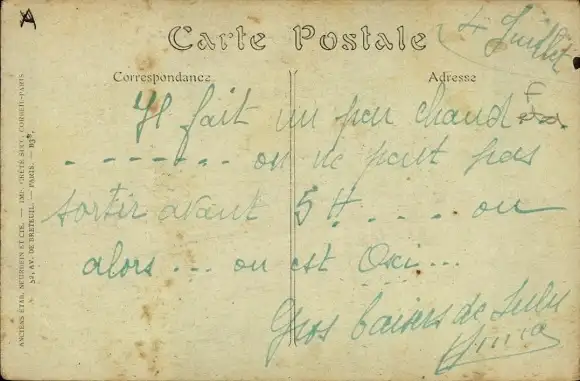 4 Juillet
Carte Postale
Correspondance
Adresse
Il fait un peu chaud
------- on ne peut pas
sortir avant 5H .... ou
alors ... on est
Gros baisers de Lulu
ANCIENS ÉTAB. NEURDEIN ET CIE. — IMP. CRÉTÉ SUCC. CORBEIL-PARIS
52, AV. DE BRETEUIL. — PARIS.